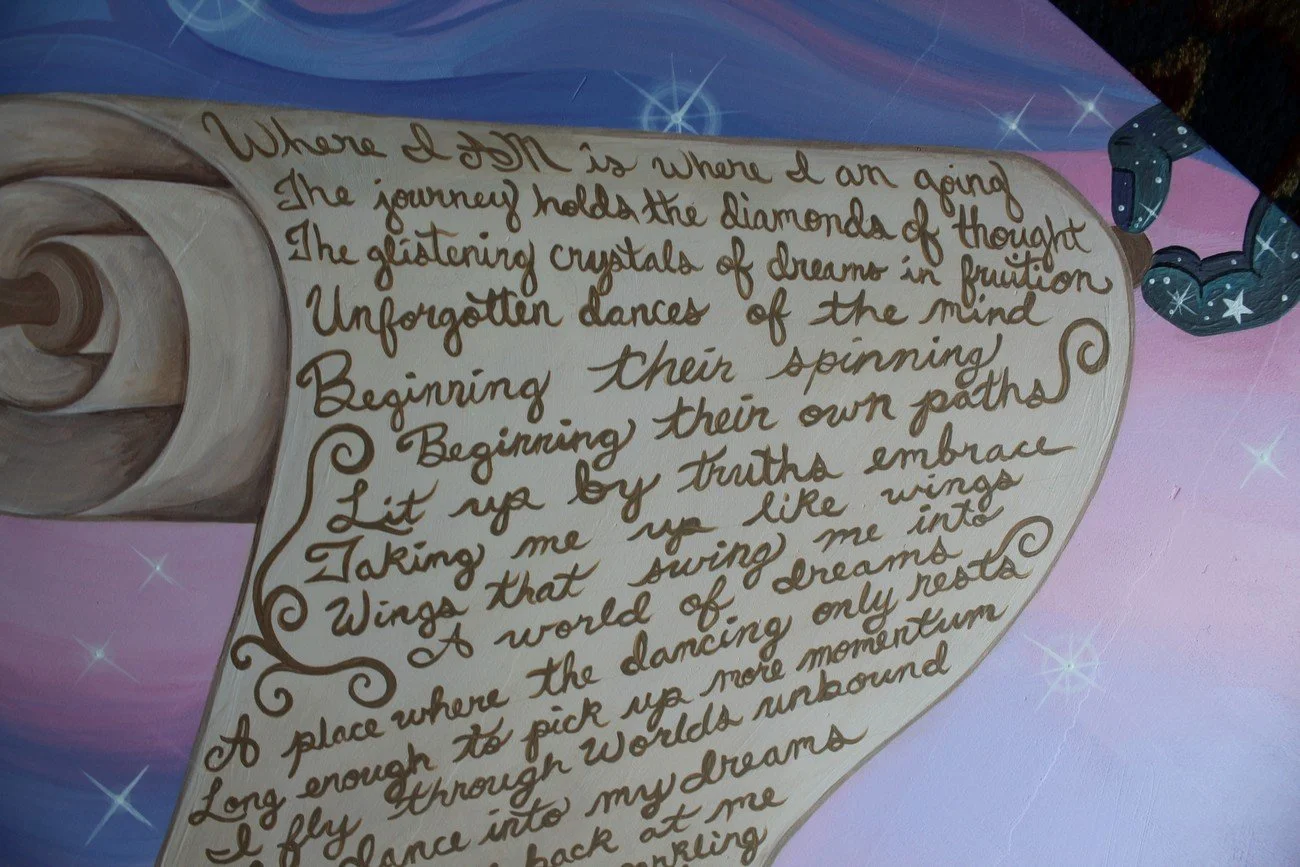 Where I AM is where I am going
The journey holds the diamonds of thought
The glistening crystals of dreams in fruition
Unforgotten dances of the mind
Beginning their spinning
Beginning their own paths
Lit up by truths embrace
Taking me up like wings
Wings that swing me into
A world of dreams
A place where the dancing only rests
Long enough to pick up more momentum
I fly through Worlds unbound
dance into my dreams
back at me